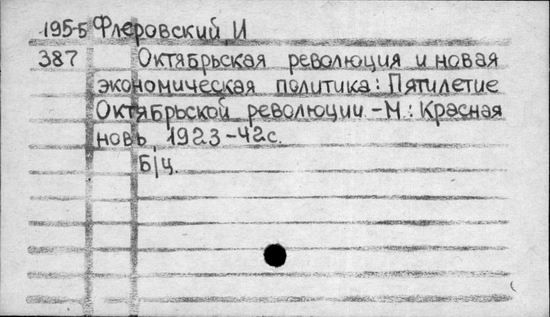 1955 Флеровский, И
387 Октябрьская революция и новая
экономическая политика: Пятилетие
Октябрьской революции -М.: Красная
новь, 1923-42с.
Б/ц.